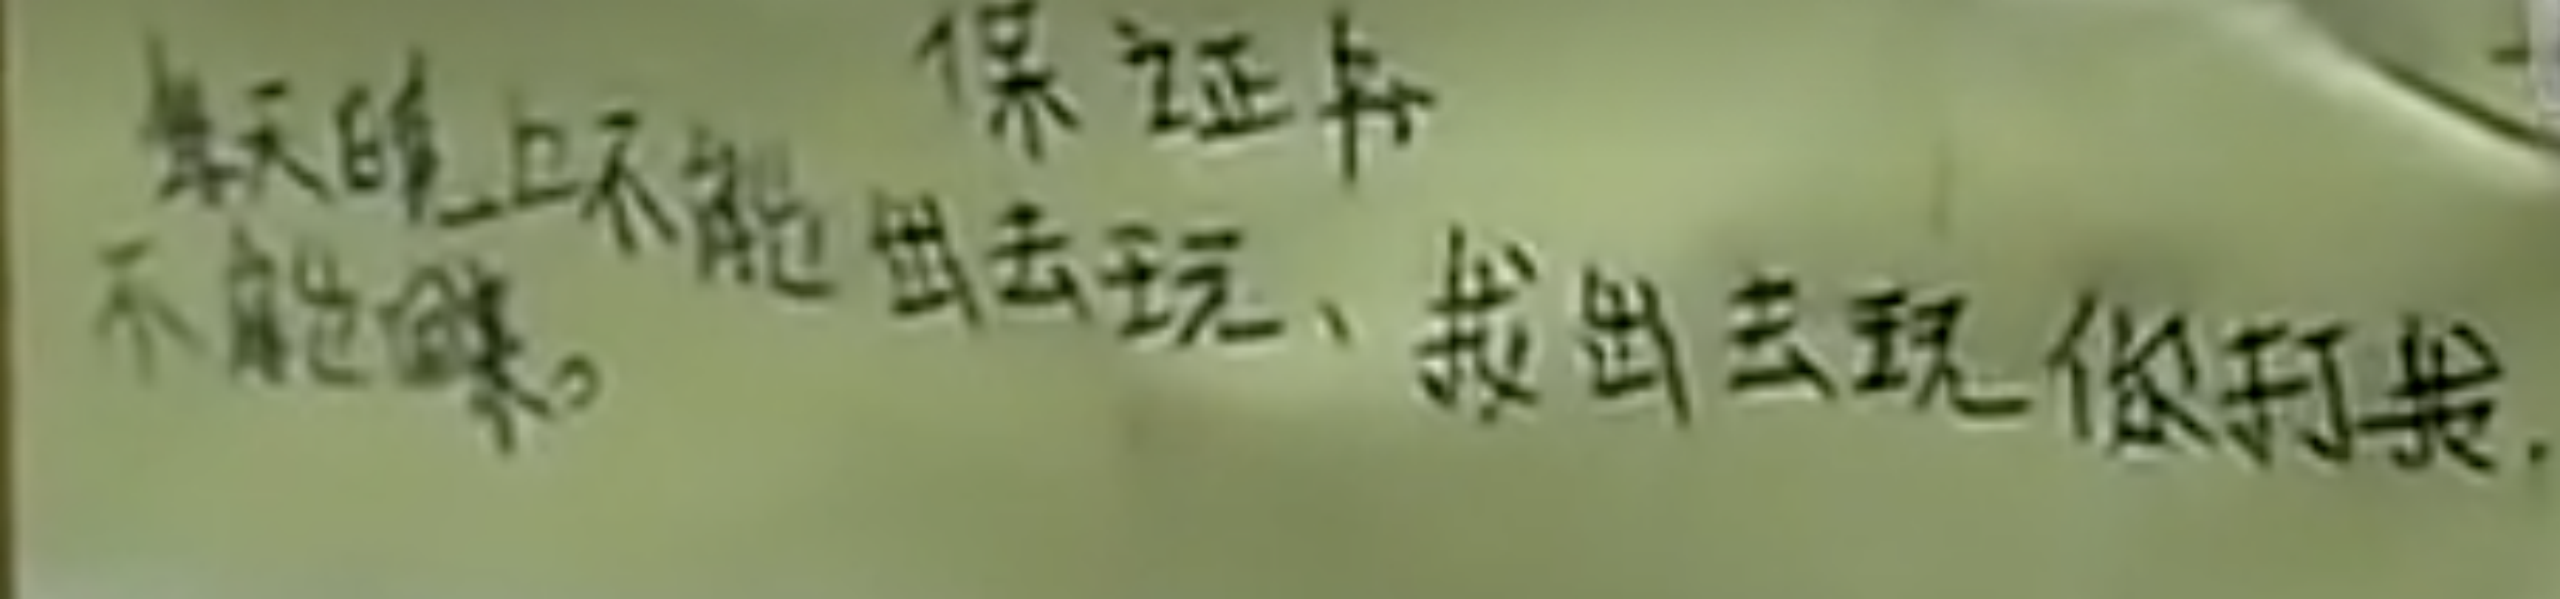 保证卡
每天的晚上不能出去玩、找出去玩你打我.
不能睬。